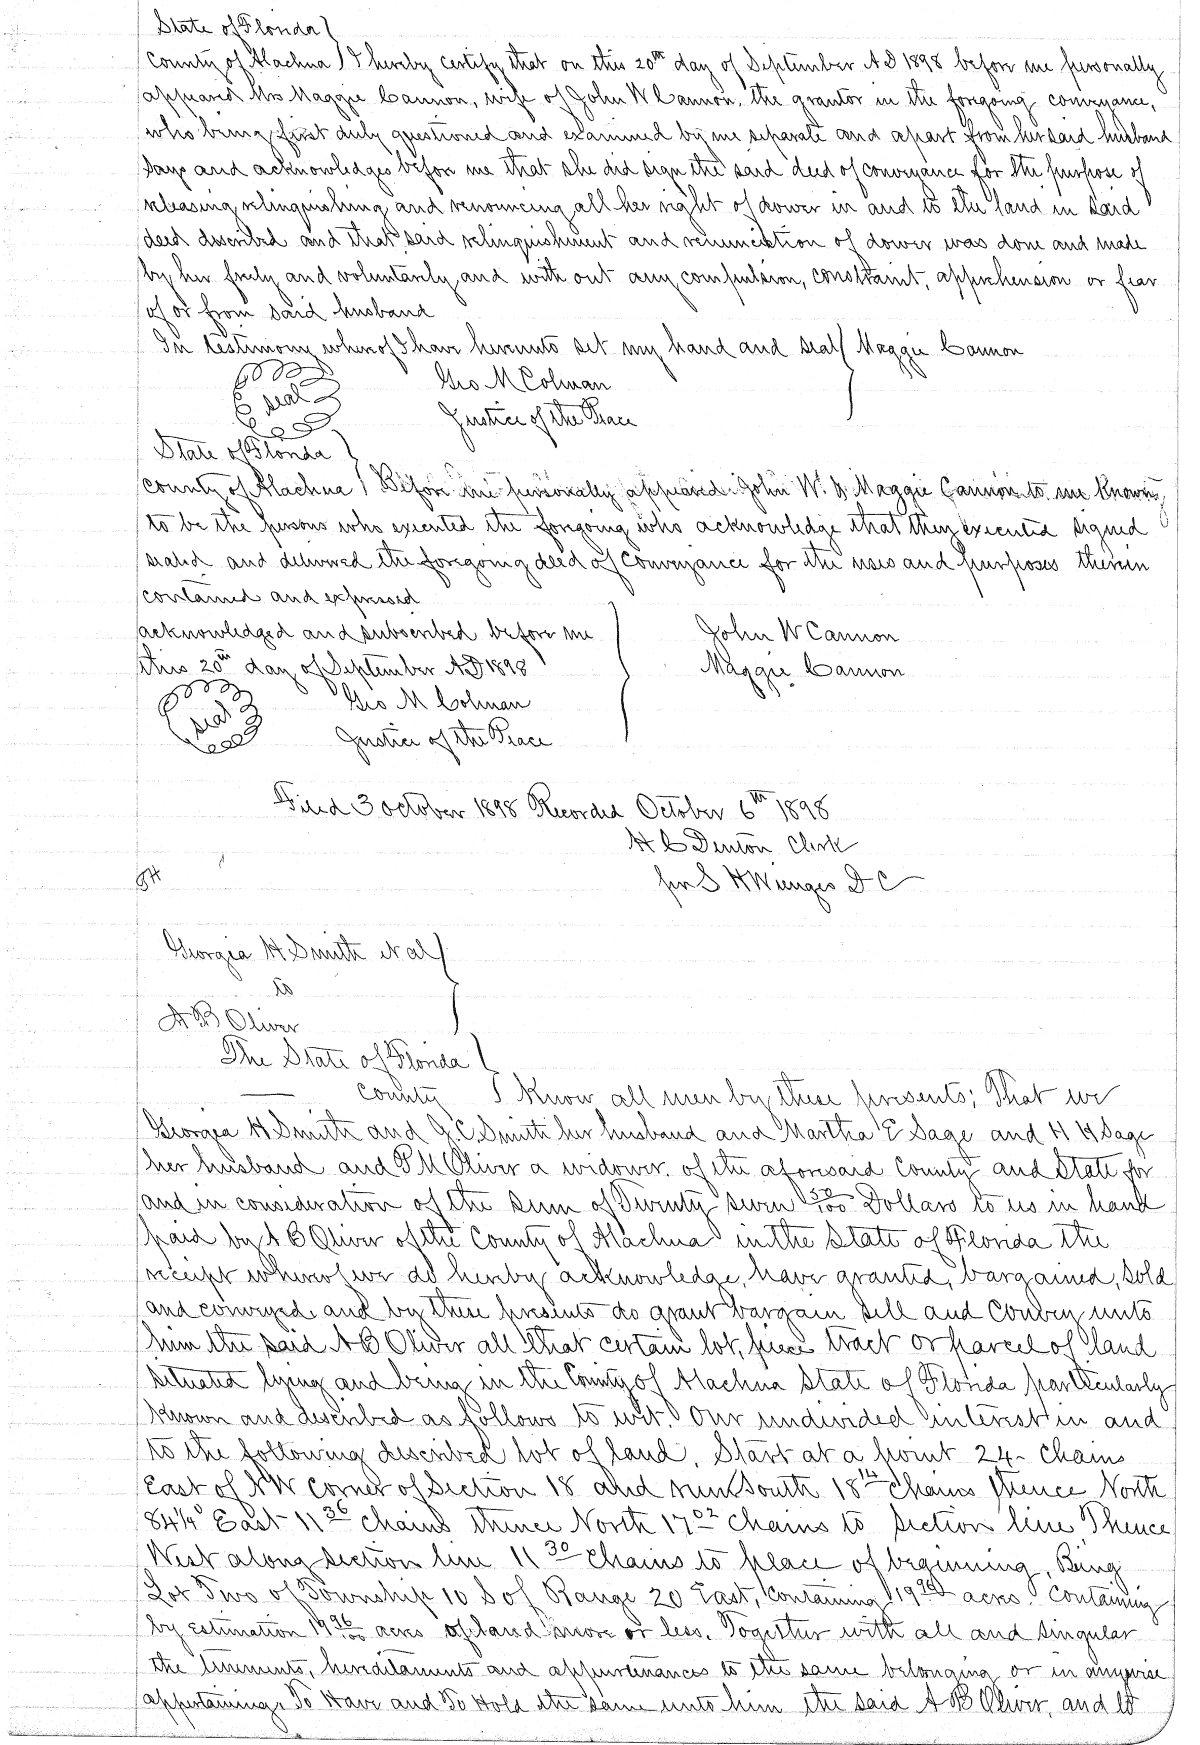 State of Florida }
County of Alachua } I hereby certify that on this 20th day of September A D 1898 before me personally
appeared Mrs Maggie Cannon, wife of John W Cannon, the grantor in the foregoing conveyance,
who being first duly questioned and examined by me separate and apart from her said husband
says and acknowledges before me that she did sign the said deed of conveyance for the purpose of
releasing, relinquishing and renouncing all her right of dower in and to the land in said
deed described and that said relinquishment and renunciation of dower was done and made
by her freely and voluntarily and with out any compulsion, constraint, apprehension or fear
of or from said husband
In testimony whereof I have hereunto set my hand and seal } Maggie Cannon
seal Geo M Colman
Justice of the Peace
State of Florida }
County of Alachua } Before me personally appeared John W. & Maggie Cannon to me known
to be the persons who executed the foregoing who acknowledge that they executed signed
sealed and delivered the foregoing deed of conveyance for the uses and purposes therein
contained and expressed
acknowledged and subscribed before me } John W Cannon
this 20th day of September A D 1898 Maggie Cannon
seal Geo M Colman
Justice of the Peace
Filed 3 October 1898 Recorded October 6th 1898
H C Denton Clerk
per S H Wienges D C
Georgia H Smith et al }
to
A B Oliver
The State of Florida }
— County } Know all men by these presents; That we
Georgia H Smith and J. C. Smith her husband and Martha E Sage and H H Sage
her husband and P M Oliver a widower. of the aforesaid County and State for
and in consideration of the sum of Twenty seven 50/100 Dollars to us in hand
paid by A B Oliver of the County of Alachua in the State of Florida the
receipt whereof we do hereby acknowledge, have granted, bargained, sold
and conveyed and by these presents do grant bargain sell and convey unto
him the said A B Oliver all that certain lot, piece tract or parcel of land
situated lying and being in the County of Alachua State of Florida particularly
known and described as follows to wit. Our undivided interest in and
to the following described lot of land. Start at a point 24- chains
East of NW corner of Section 18 and run South 18 14 chains thence North
84¼° East 11 36 chains thence North 17 02 chains to section line Thence
West along section line 11 30 chains to place of beginning, Being
Lot Two of Township 10 S of Range 20 East, containing 19 96 acres. Containing
by estimation 19 96/100 acres of land more or less. Together with all and singular
the tenements, hereditaments and appurtenances to the same belonging or in anywise
appertaining. To Have and To Hold the same unto him the said A B Oliver, and to